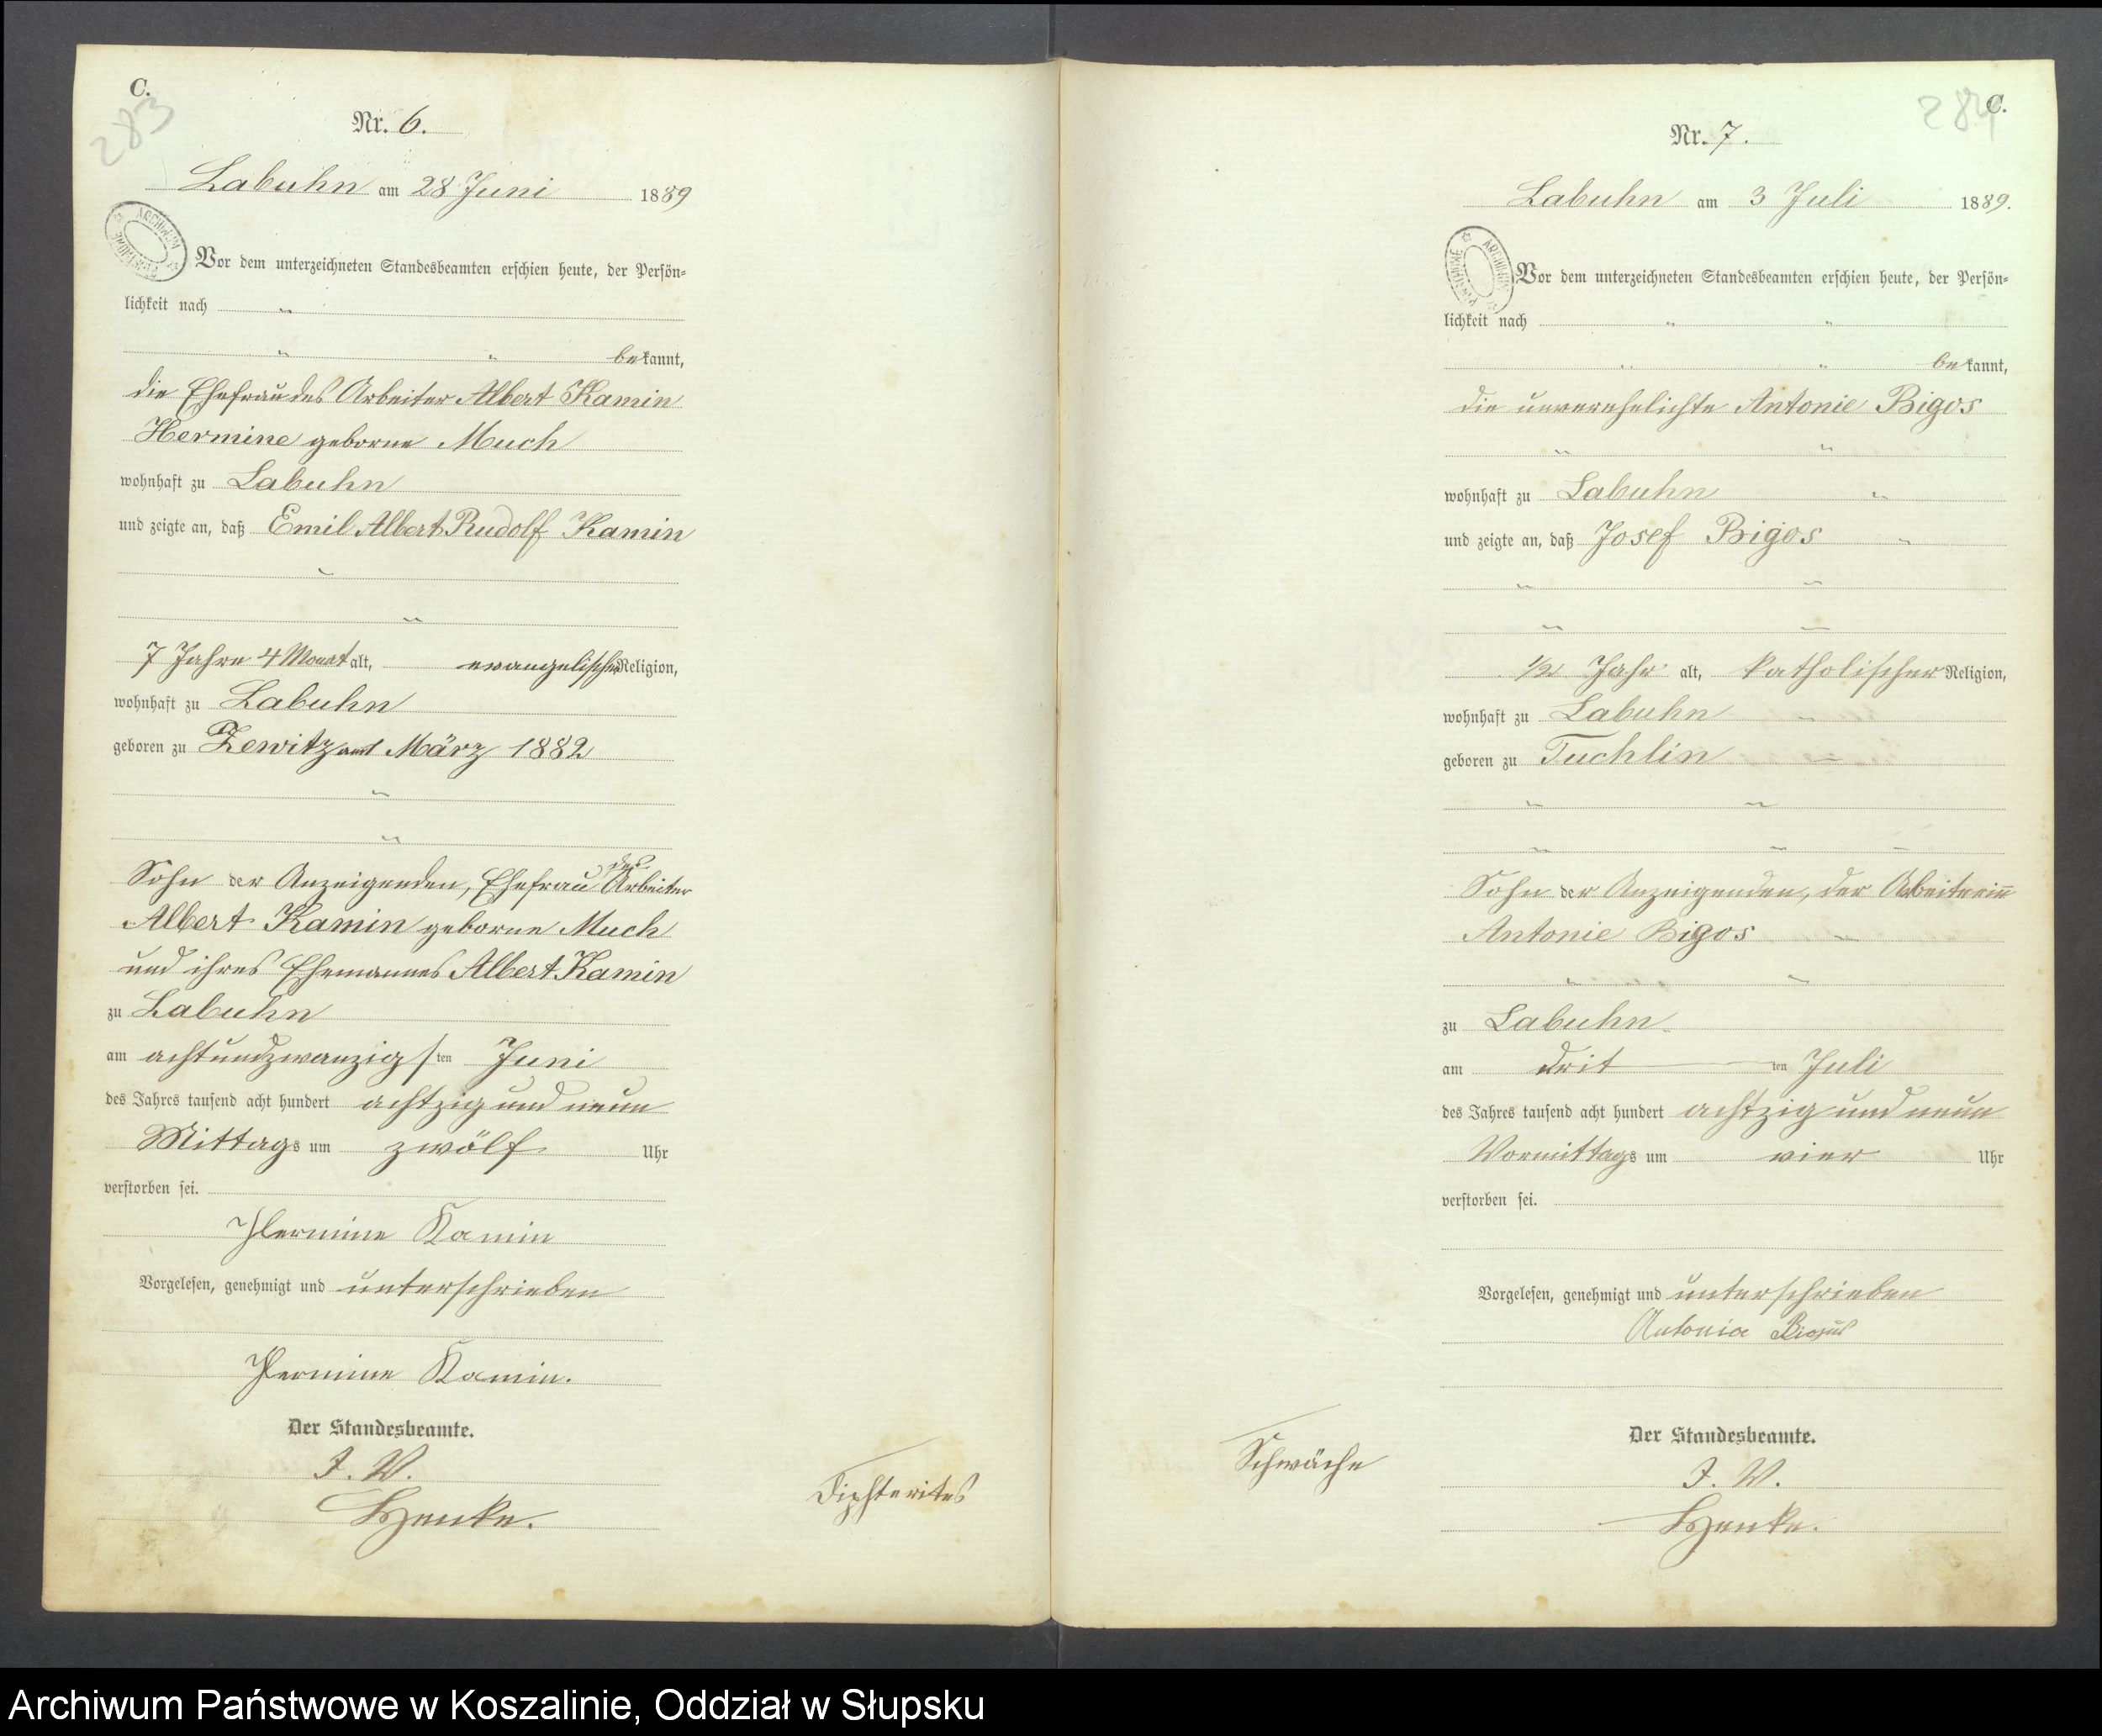 C.
283
Nr. 6.
Labuhn am 28 Juni 1889
ARCHIWUM PAŃSTWOWE
Vor dem unterzeichneten Standesbeamten erschien heute, der Persön-
lichkeit nach
bekannt,
die Ehefrau des Arbeiter Albert Kamin
Hermine geborne Much
wohnhaft zu Labuhn
und zeigte an, daß Emil Albert Rudolf Kamin
7 Jahre 4 Monat alt, evangelischer Religion,
wohnhaft zu Labuhn
geboren zu Zewitz März 1882
Sohn der Anzeigenden, Ehefrau des Arbeiter
Albert Kamin geborne Much
und ihres Ehemannes Albert Kamin
zu Labuhn
am achtundzwanzigsten Juni
des Jahres tausend acht hundert achtzig und neun
Mittags um zwölf Uhr
verstorben sei.
Hermine Kamin
Vorgelesen, genehmigt und unterschrieben
Hermine Kamin.
Der Standesbeamte.
I. V.
Henke.
Diphterites
C.
284
Nr. 7.
Labuhn am 3 Juli 1889.
ARCHIWUM PAŃSTWOWE
Vor dem unterzeichneten Standesbeamten erschien heute, der Persön-
lichkeit nach
bekannt,
die unverehelichte Antonie Bigos
wohnhaft zu Labuhn
und zeigte an, daß Josef Bigos
1/2 Jahr alt, katholischer Religion,
wohnhaft zu Labuhn
geboren zu Tuchlin
Sohn der Anzeigenden, der Arbeiterin
Antonie Bigos
zu Labuhn
am dritten Juli
des Jahres tausend acht hundert achtzig und neun
Vormittags um vier Uhr
verstorben sei.
Vorgelesen, genehmigt und unterschrieben
Antonia
Der Standesbeamte.
I. V.
Henke.
Schwäche
Archiwum Państwowe w Koszalinie, Oddział w Słupsku